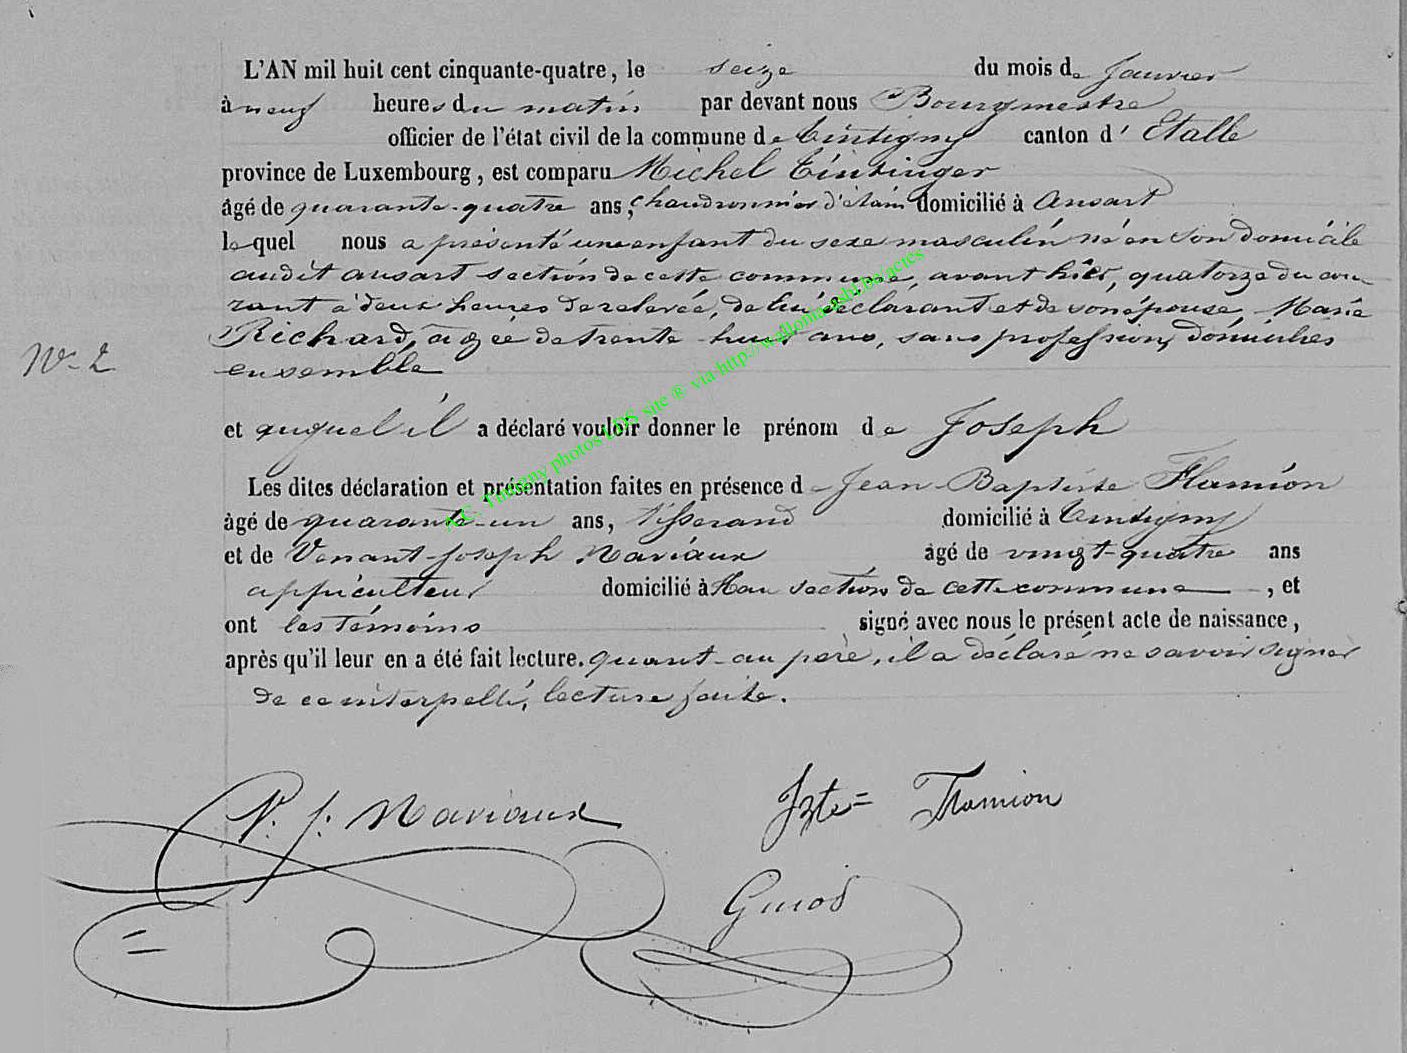 L'AN mil huit cent cinquante-quatre, le seize du mois de Janvier
à neuf heures du matin par devant nous Bourgmestre
officier de l'état civil de la commune de Tintigny canton d' Etalle
province de Luxembourg, est comparu Michel Tintinger
âgé de quarante-quatre ans, chaudronnier d'étain domicilié à Ansart
lequel nous a présenté un enfant du sexe masculin né en son domicile
audit ansart section de cette commune, avant hier, quatorze du cou-
rant à deux heures de relevée, de lui déclarant et de son épouse, Marie
Richard, agée de trente-huit ans, sans profession, domiciliés
ensemble
N. 2
et auquel il a déclaré vouloir donner le prénom de Joseph
Les dites déclaration et présentation faites en présence d Jean-Baptiste Flamion
âgé de quarante-un ans, tisserand domicilié à Tintigny
et de Venant-Joseph Naviaux âgé de vingt-quatre ans
appiculteur domicilié à Han section de cette commune, et
ont les témoins signé avec nous le présent acte de naissance,
après qu'il leur en a été fait lecture. quant-au père, il a déclaré ne savoir signer
de ce interpellé, lecture faite.
V. J. Naviaux Jbte= Flamion
photos LDS site ® via http://wallonia-asbl.be/actes